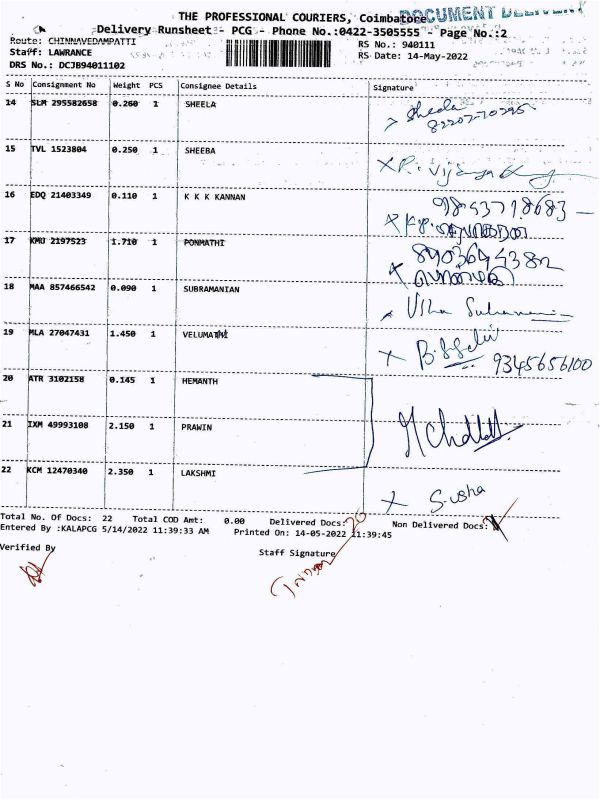 THE PROFESSIONAL COURIERS, Coimbatore
DOCUMENT DELIVERY
Delivery Runsheet - PCG - Phone No.:0422-3505555 - Page No.:2
Route: CHINNAVEDAMPATTI RS No.: 940111
Staff: LAWRANCE RS Date: 14-May-2022
DRS No.: DCJB94011102
S No Consignment No Weight PCS Consignee Details Signature
14 SLM 295582658 0.260 1 SHEELA Sheela
82207-70295
15 TVL 1523804 0.250 1 SHEEBA
16 EDQ 21403349 0.110 1 K K K KANNAN 9843718683
17 KMU 2197523 1.710 1 PONMATHI 8903694382
18 MAA 857466542 0.090 1 SUBRAMANIAN Usha
19 MLA 27047431 1.450 1 VELUMATHI 9345656100
20 ATR 3102158 0.145 1 HEMANTH
21 IXM 49993108 2.150 1 PRAWIN
22 KCM 12470340 2.350 1 LAKSHMI X Susha
Total No. Of Docs: 22 Total COD Amt: 0.00 Delivered Docs: Non Delivered Docs:
Entered By :KALAPCG 5/14/2022 11:39:33 AM Printed On: 14-05-2022 11:39:45
Verified By Staff Signature